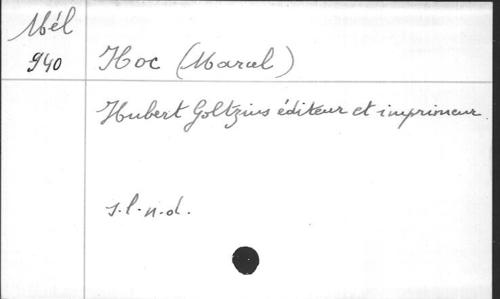 Mél
940
Hoc (Marcel)
Hubert Goltzius éditeur et imprimeur.
s.l.n.d.